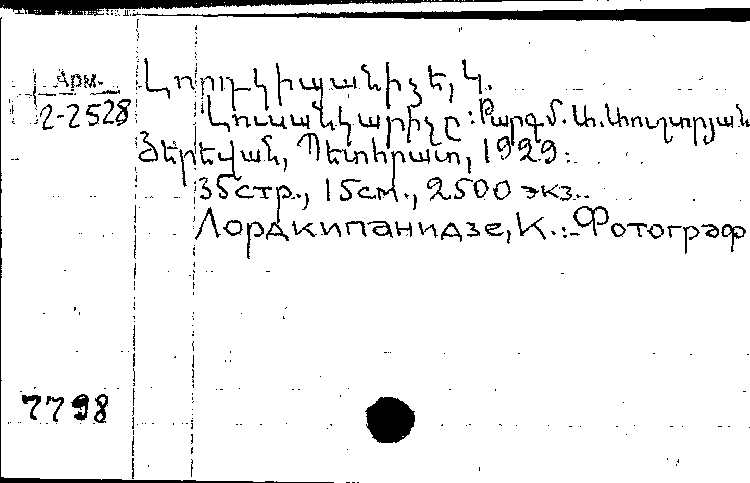 Арм.
2-2528
Լորդկիպանիձե, Կ.
Լուսանկարիչը: Թարգմ. Ստ. Առւշտրյան
Յերեվան, Պետհրատ, 1929.
35 стр., 15 см., 2500 экз.
Лордкипанидзе, К.: Фотограф
7798